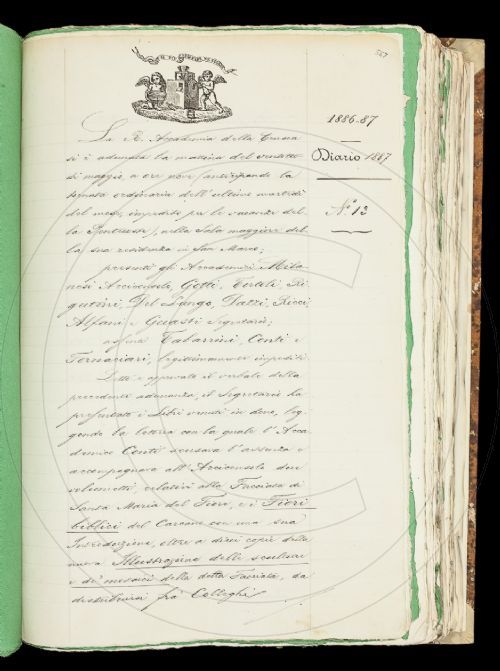 567
1886-87
Diario 1887
N.º 13
La R. Accademia della Crusca
si è adunata la mattina del ventotto
di maggio, a ore nove, anticipando la
tornata ordinaria dell'ultimo martedì
del mese, impedita per le vacanze del-
la Pentecoste, nella Sala maggiore del-
la sua residenza in San Marco;
presenti gli Accademici Mila-
nesi Arciconsolo, Gotti, Tortoli, Ri-
gutini, Del Lungo, Dazzi, Ricci,
Alfani e Guasti Segretario;
assenti Tabarrini, Conti e
Fornaciari, legittimamente impediti.
Letto e approvato il verbale della
precedente adunanza, il Segretario ha
presentato i Libri venuti in dono, leg-
gendo la lettera con la quale l'Acca-
demico Conti scusava l'assenza e
accompagnava all'Arciconsolo due
volumetti, relativi alla Facciata di
Santa Maria del Fiore, e i Fiori
biblici del Carcano con una sua
Introduzione, oltre a dieci copie della
nuova Illustrazione delle sculture
e de' mosaici della detta Facciata, da
distribuirsi fra' Colleghi.